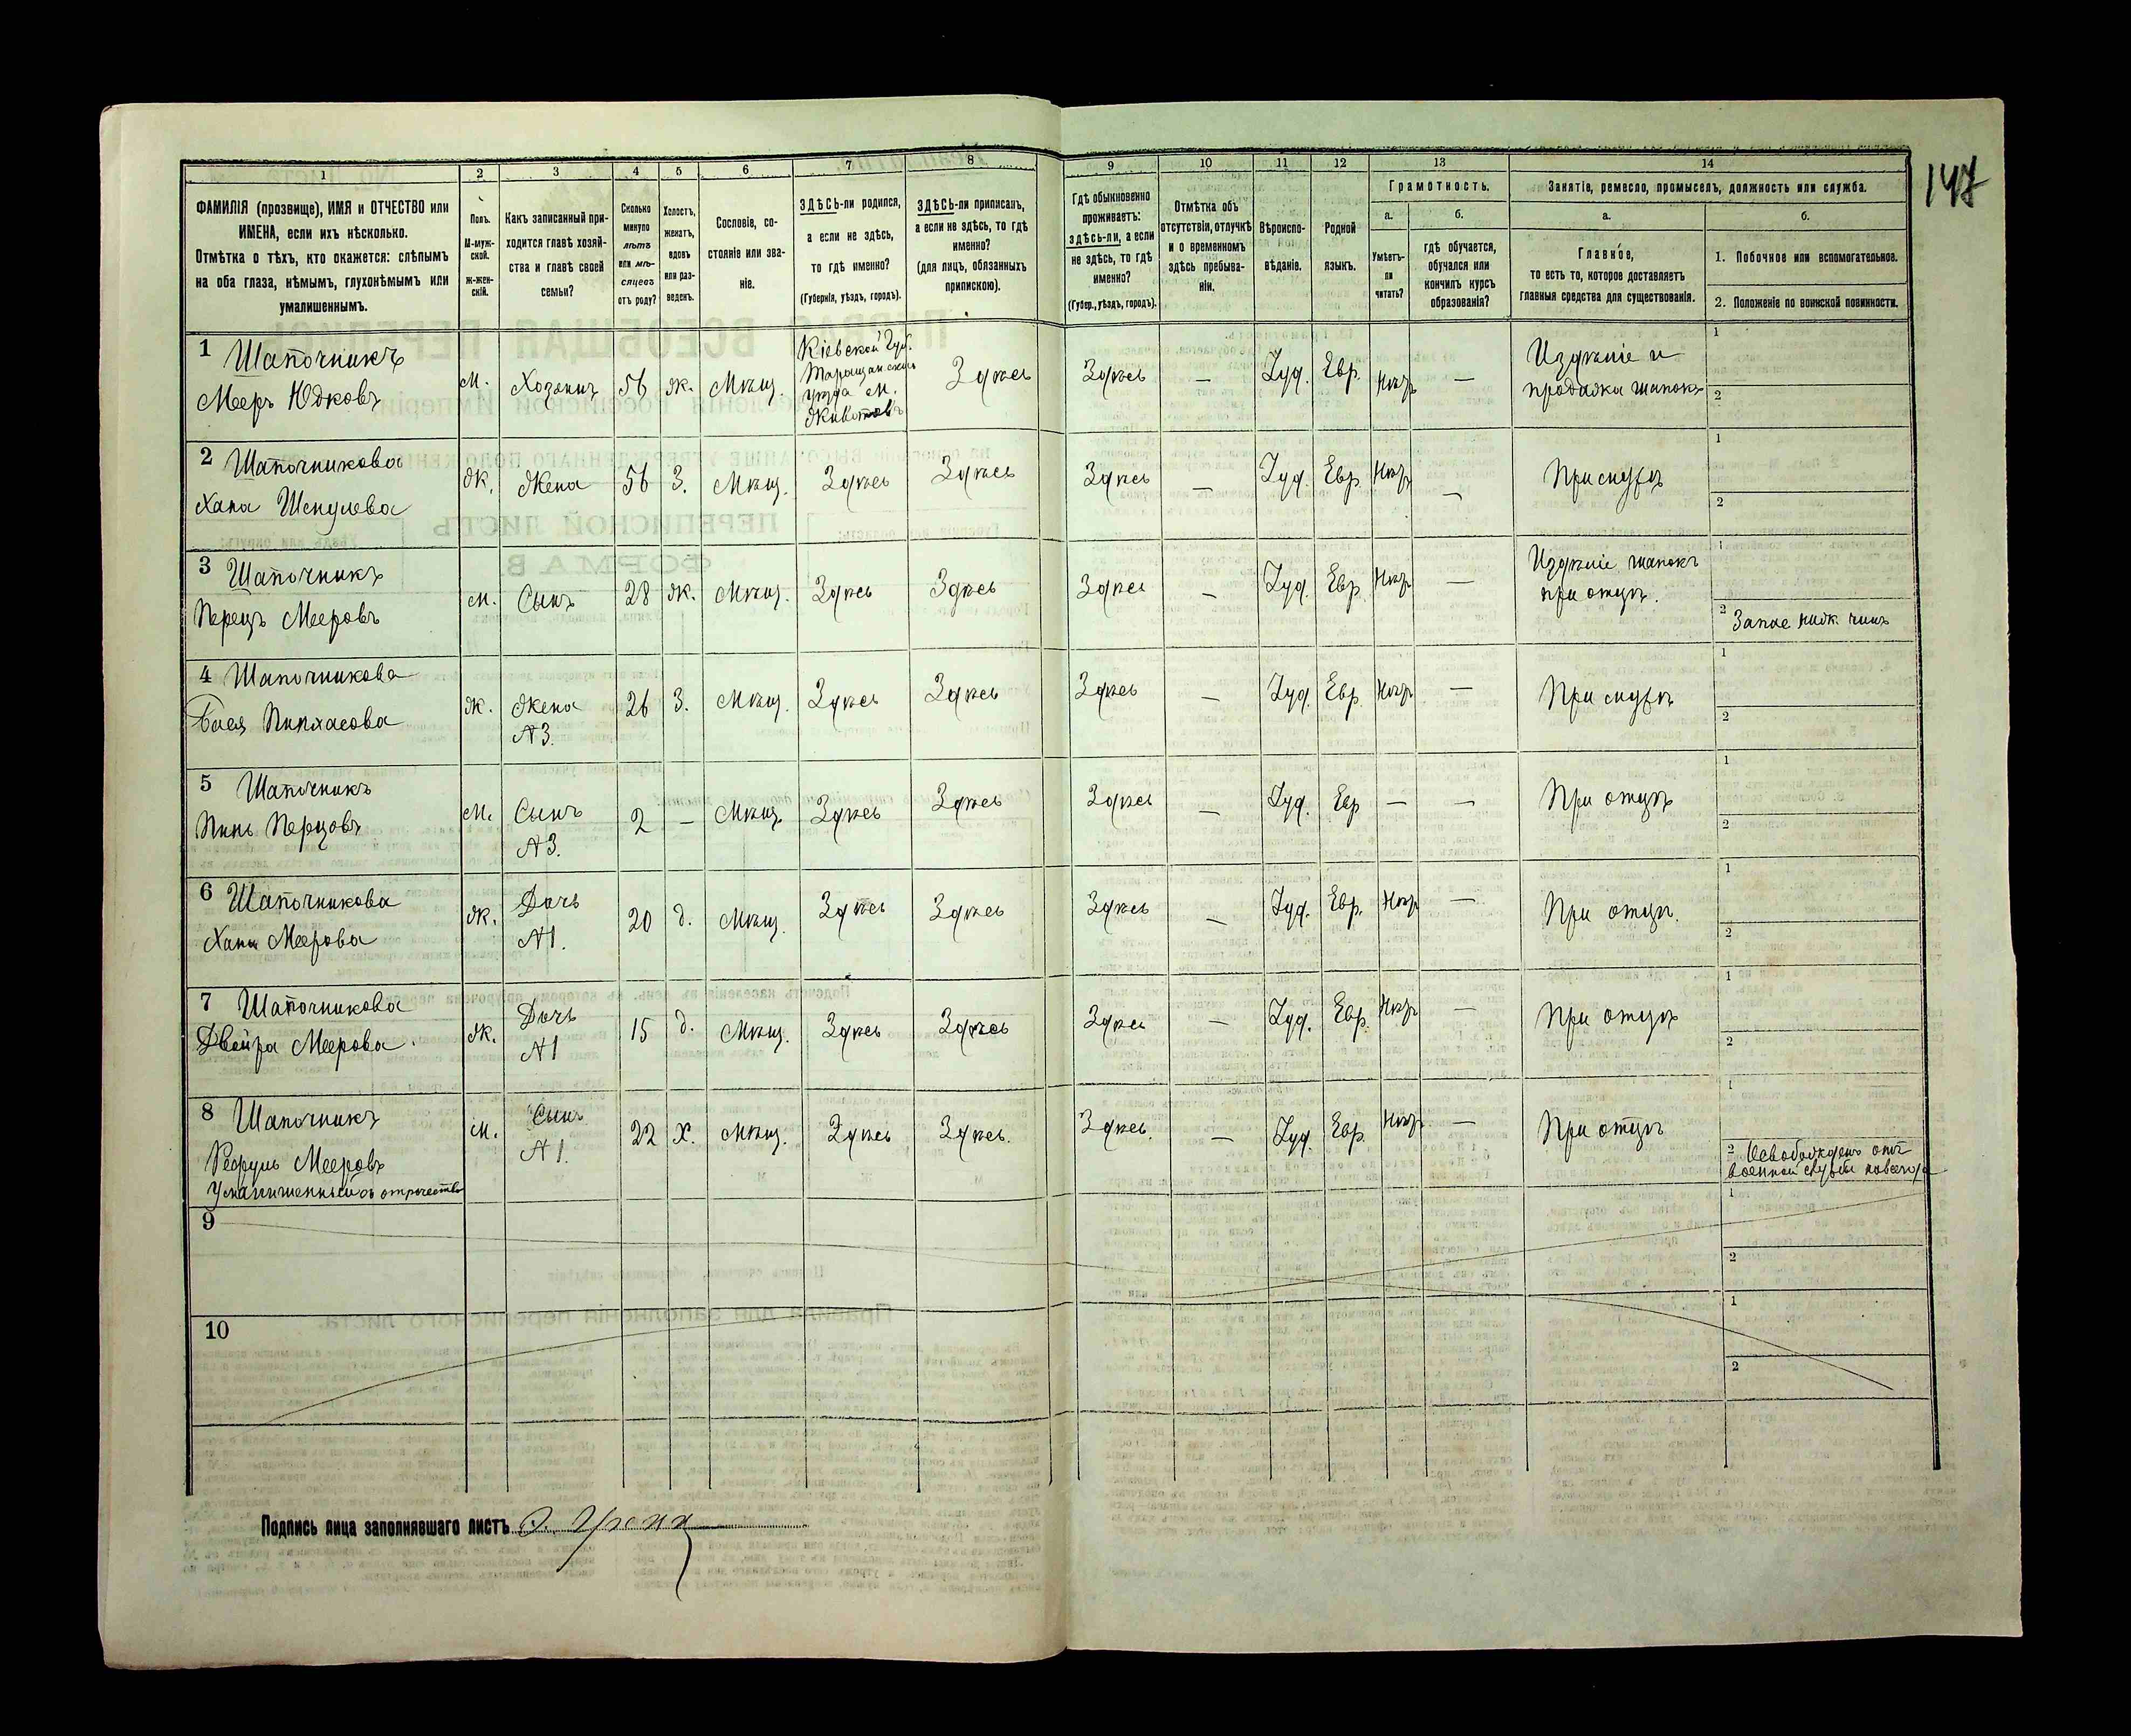 147
1
2
3
4
5
6
7
8
9
10
11
12
13
14
ФАМИЛІЯ (прозвище), ИМЯ и ОТЧЕСТВО или
ИМЕНА, если ихъ нѣсколько.
Отмѣтка о тѣхъ, кто окажется: слѣпымъ
на оба глаза, нѣмымъ, глухонѣмымъ или
умалишеннымъ.
Полъ.
М-муж-
ской.
Ж-жен-
скій.
Какъ записанный при-
ходится главѣ хозяй-
ства и главѣ своей
семьи?
Сколько
минуло
лѣтъ
или мѣ-
сяцевъ
отъ роду?
Холостъ,
женатъ,
вдовъ
или раз-
веденъ.
Сословіе, со-
стояніе или зва-
ніе.
ЗДѢСЬ-ли родился,
а если не здѣсь,
то гдѣ именно?
(Губернія, уѣздъ, городъ).
ЗДѢСЬ-ли приписанъ,
а если не здѣсь, то гдѣ
именно?
(для лицъ, обязанныхъ
припискою).
Гдѣ обыкновенно
проживаетъ:
здѣсь-ли, а если
не здѣсь, то гдѣ
именно?
(Губер., уѣздъ, городъ).
Отмѣтка объ
отсутствіи, отлучкѣ
и о временномъ
здѣсь пребыва-
ніи.
Вѣроиспо-
вѣданіе.
Родной
языкъ.
Грамотность.
а.
Умѣетъ-
ли
читать?
б.
гдѣ обучается,
обучался или
кончилъ курсъ
образованія?
Занятіе, ремесло, промыселъ, должность или служба.
а.
Главное,
то есть то, которое доставляетъ
главныя средства для существованія.
б.
1. Побочное или вспомогательное.
2. Положеніе по воинской повинности.
1 Шапочникъ
Мееръ Юдковъ
м. Хозяинъ 56 ж. Мѣщ.
Кіевской Губ.
Таращанскаго
уѣзда м.
Животовъ
Здѣсь Здѣсь — Іуд. Евр. Нѣтъ —
Издѣліе и
продажа шапокъ
1
2
2 Шапочникова
Хана Шмулева
ж. Жена 56 З. Мѣщ. Здѣсь Здѣсь Здѣсь — Іуд. Евр. Нѣтъ — При мужѣ
1
2
3 Шапочникъ
Перецъ Мееровъ
м. Сынъ 28 ж. Мѣщ. Здѣсь Здѣсь Здѣсь — Іуд. Евр. Нѣтъ —
Издѣліе шапокъ
при отцѣ.
1
2 Запас ниж чинъ
4 Шапочникова
Бася Пинхасова
ж. Жена 26 З. Мѣщ. Здѣсь Здѣсь Здѣсь — Іуд. Евр. Нѣтъ — При мужѣ
№3.
1
2
5 Шапочникъ
Пинь Перцовъ
м. Сынъ 2 — Мѣщ. Здѣсь Здѣсь Здѣсь — Іуд. Евр — — При отцѣ
№3.
1
2
6 Шапочникова
Хана Меерова
ж. Дочь 20 д. Мѣщ. Здѣсь Здѣсь Здѣсь — Іуд. Евр. Нѣтъ — При отцѣ.
№1.
1
2
7 Шапочникова
Двейра Меерова.
ж. Дочь 15 д. Мѣщ. Здѣсь Здѣсь Здѣсь — Іуд. Евр. Нѣтъ — При отцѣ
№1
1
2
8 Шапочникъ
Мееровъ
Умалишенный съ отрочества
м. Сынъ 22 Х. Мѣщ. Здѣсь Здѣсь. Здѣсь. — Іуд. Евр. Нѣтъ — При отцѣ
№1.
1
2 Освобожденъ отъ
военной службы навсегда
9
1
2
10
1
2
Подпись лица заполнявшаго листъ